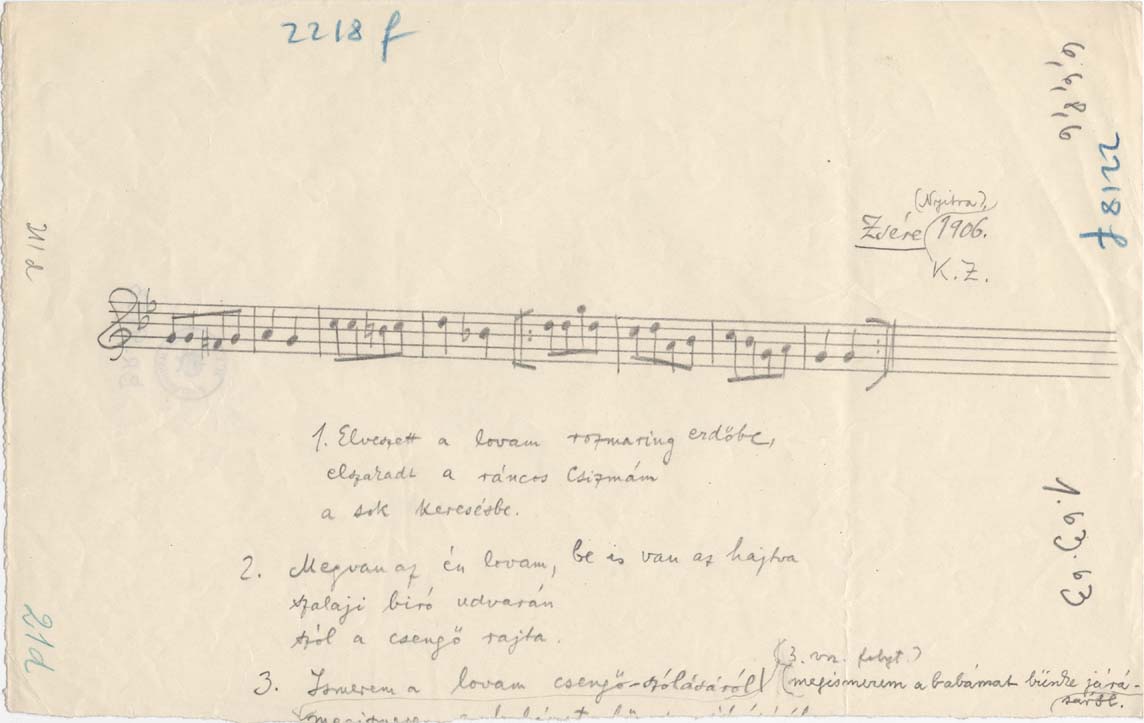 2218 f
6, 6, 8, 6
2218 f
21 d
(Nyitra),
Zsére 1906.
K. Z.
1. Elveszett a lovam rozmaring erdőbe,
elszakadt a ráncos csizmám
a sok keresésbe.
2. Megvan az én lovam, be is van az hajtva
szalaji biró udvarán
szól a csengő rajta.
(3. vsz. folyt.)
3. Ismerem a lovam csengő-szólásáról
(megismerem a babámat büszke járá-
sáról.
21 d